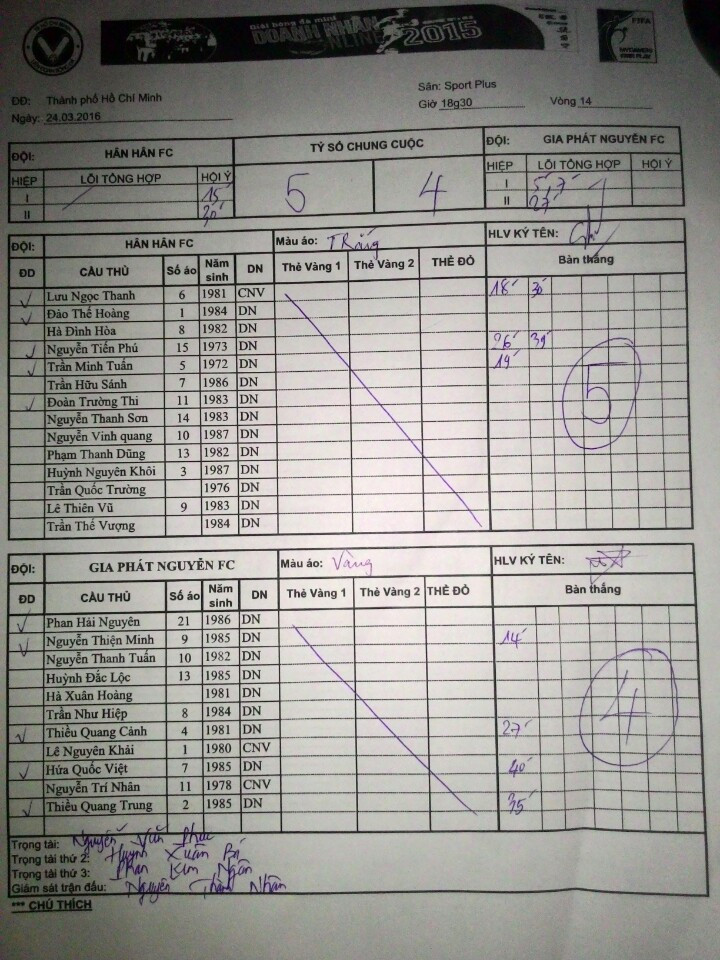 Giải bóng đá mini
DOANH NHÂN
ONLINE 2015
FIFA
ĐĐ: Thành phố Hồ Chí Minh
Sân: Sport Plus
Ngày: 24.03.2016
Giờ 18g30 Vòng 14
ĐỘI: HÂN HÂN FC TỶ SỐ CHUNG CUỘC ĐỘI: GIA PHÁT NGUYỄN FC
HIỆP LỖI TỔNG HỢP HỘI Ý 5 4 HIỆP LỖI TỔNG HỢP HỘI Ý
I 15' I 5' 7'
II 30' II 27'
ĐỘI: HÂN HÂN FC Màu áo: Trắng HLV KÝ TÊN:
ĐD CẦU THỦ Số áo Năm sinh DN Thẻ Vàng 1 Thẻ Vàng 2 THẺ ĐỎ Bàn thắng
Lưu Ngọc Thanh 6 1981 CNV 18' 30'
Đào Thế Hoàng 1 1984 DN
Hà Đình Hòa 8 1982 DN
Nguyễn Tiến Phú 15 1973 DN 26' 39'
Trần Minh Tuấn 5 1972 DN 19'
Trần Hữu Sánh 7 1986 DN
Đoàn Trường Thi 11 1983 DN 5
Nguyễn Thanh Sơn 14 1983 DN
Nguyễn Vinh quang 10 1987 DN
Phạm Thanh Dũng 13 1982 DN
Huỳnh Nguyên Khôi 3 1987 DN
Trần Quốc Trường 1976 DN
Lê Thiên Vũ 9 1983 DN
Trần Thế Vượng 1984 DN
ĐỘI: GIA PHÁT NGUYỄN FC Màu áo: Vàng HLV KÝ TÊN:
ĐD CẦU THỦ Số áo Năm sinh DN Thẻ Vàng 1 Thẻ Vàng 2 THẺ ĐỎ Bàn thắng
Phan Hải Nguyên 21 1986 DN
Nguyễn Thiện Minh 9 1985 DN 14'
Nguyễn Thanh Tuấn 10 1982 DN
Huỳnh Đắc Lộc 13 1985 DN
Hà Xuân Hoàng 1981 DN
Trần Như Hiệp 8 1984 DN 4
Thiều Quang Cảnh 4 1981 DN 27'
Lê Nguyên Khải 1 1980 CNV
Hứa Quốc Việt 7 1985 DN 40'
Nguyễn Trí Nhân 11 1978 CNV
Thiều Quang Trung 2 1985 DN 35'
Trọng tài: Nguyễn Văn Phúc
Trọng tài thứ 2: Huỳnh Xuân Bí
Trọng tài thứ 3: Phan Kim Ngân
Giám sát trận đấu: Nguyễn Thành Nhân
*** CHÚ THÍCH